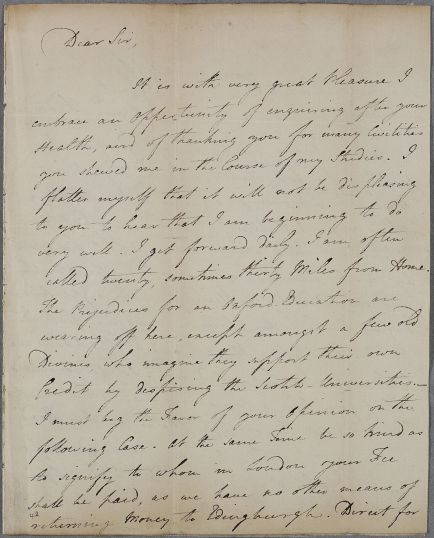 Dear Sir,
It is with very great Pleasure I
embrace an Opportunity of enquiring after your
Health, and of thanking you for many civilities
you shewed me in the Course of my Studies. I
flatter myself that it will not be displeasing
to you to hear that I am beginning to do
very well. I get forward daily. I am often
called twenty, sometimes thirty Miles from Home.
The Prejudices for an Oxford Education are
wearing off here, except amongst a few old
Divines, who imagine they support their own
Credit by despising the Scotch Universities.—
I must beg the Favor of your Opinion on the
following Case. At the same Time be so kind as
to signify to whom in London your Fee
shall be paid, as we have no other means of
returning Money to Edingburgh. Direct for